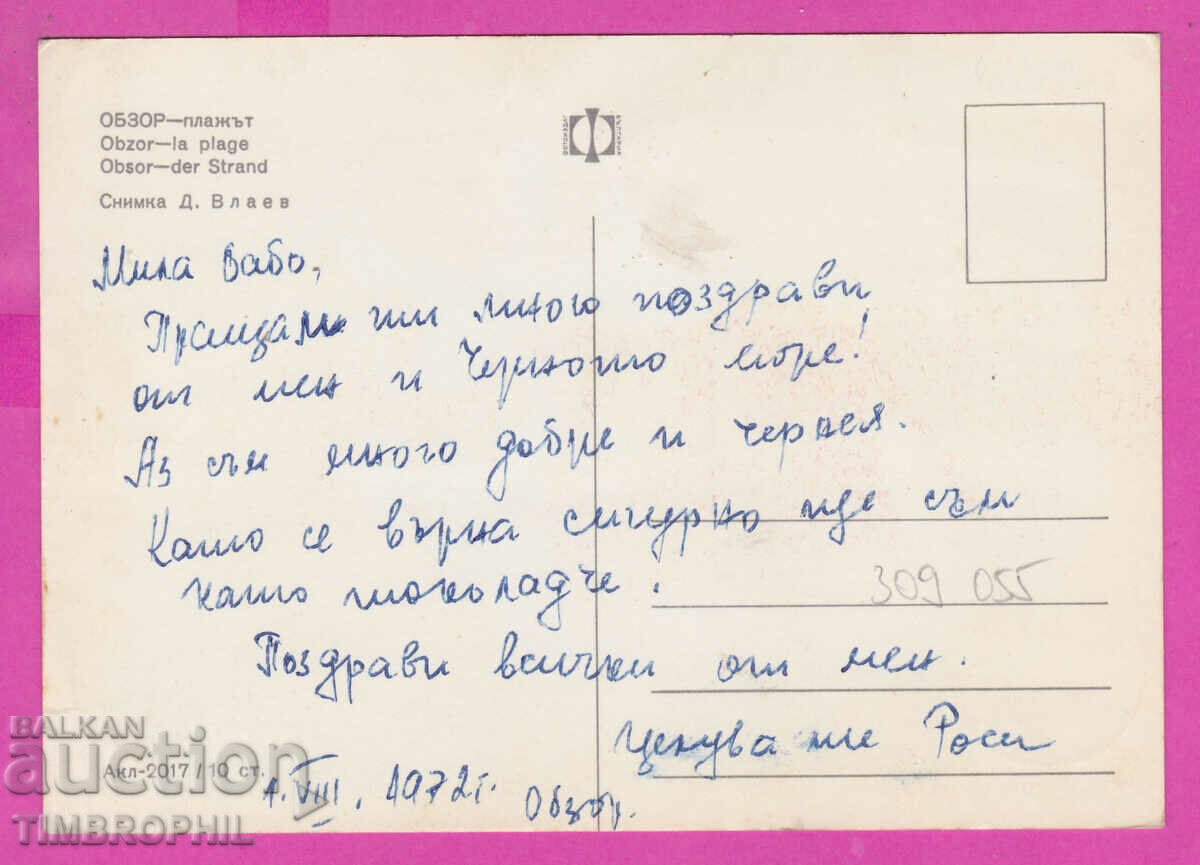 ОБЗОР—плажът
Obzor—la plage
Obsor—der Strand
Снимка Д. Влаев
ФОТОИЗДАТ
БЪЛГАРИЯ
Мила Бабо,
Пращам ти много поздрави
от мен и Черното море!
Аз съм много добре и чернея.
Като се върна сигурно ще съм
като шоколадче.
309 055
Поздрави всички от мен.
Целува те Роси
1.VIII. 1972г. Обзор.
Акл-2017 / 10 ст.
BALKAN
auction
TIMBROPHIL